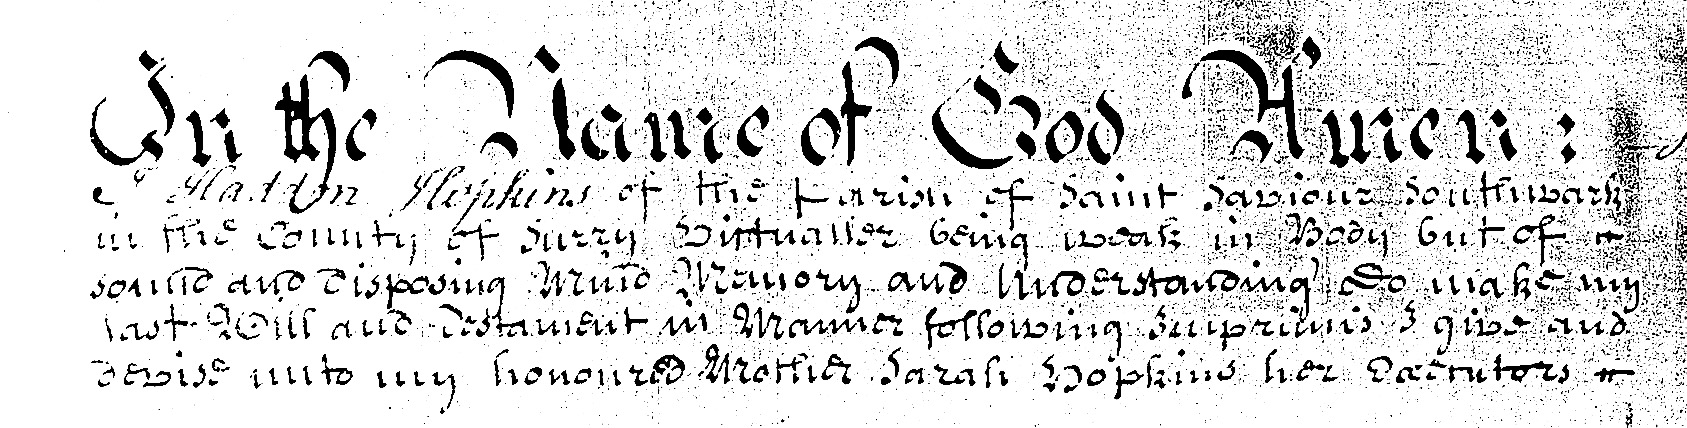 In the Name of God Amen:
I Haddon Hopkins of the Parish of Saint Saviour Southwark
in the County of Surry Victualler being weak in Body but of
sound and disposing Mind Memory and Understanding Do make my
last Will and Testament in Manner following Imprimis I give and
devise unto my honoured Mother Sarah Hopkins her Executors